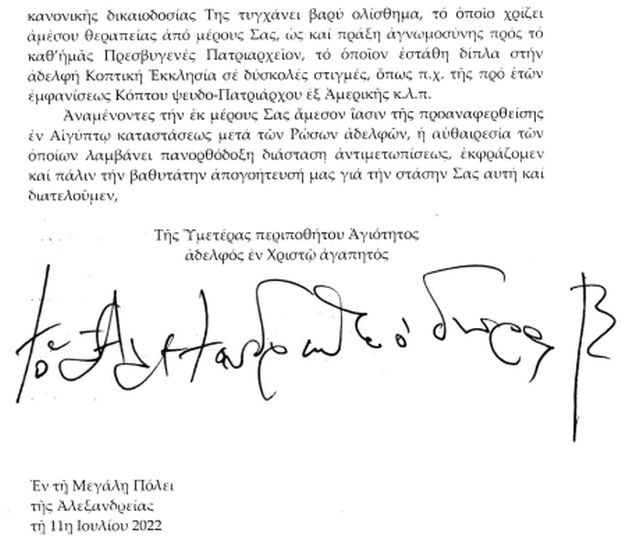 κανονικῆς δικαιοδοσίας Της τυγχάνει βαρύ ὀλίσθημα, τό ὁποῖο χρίζει
ἀμέσου θεραπείας ἀπό μέρους Σας, ὡς καί πράξη ἀγνωμοσύνης πρός τό
καθ’ἡμᾶς Πρεσβυγενές Πατριαρχεῖον, τό ὁποῖον ἐστάθη δίπλα στήν
ἀδελφή Κοπτική Ἐκκλησία σέ δύσκολές στιγμές, ὅπως π.χ. τῆς πρό ἐτῶν
ἐμφανίσεως Κόπτου ψευδο-Πατριάρχου ἐξ Ἀμερικῆς κ.λ.π.
Ἀναμένοντες τήν ἐκ μέρους Σας ἄμεσον ἴασιν τῆς προαναφερθείσης
ἐν Αἰγύπτῳ καταστάσεως μετά τῶν Ρώσων ἀδελφῶν, ἡ αὐθαιρεσία τῶν
ὁποίων λαμβάνει πανορθόδοξη διάσταση ἀντιμετωπίσεως, ἐκφράζομεν
καί πάλιν τήν βαθυτάτην ἀπογοήτευσή μας γιά τήν στάσην Σας αυτή καί
διατελοῦμεν,
Τῆς Ὑμετέρας περιποθήτου Ἁγιότητος
ἀδελφός ἐν Χριστῷ ἀγαπητός
† ὁ Ἀλεξανδρείας Θεόδωρος Β
Ἐν τῇ Μεγάλῃ Πόλει
τῆς Ἀλεξανδρείας
τῇ 11ῃ Ιουλίου 2022